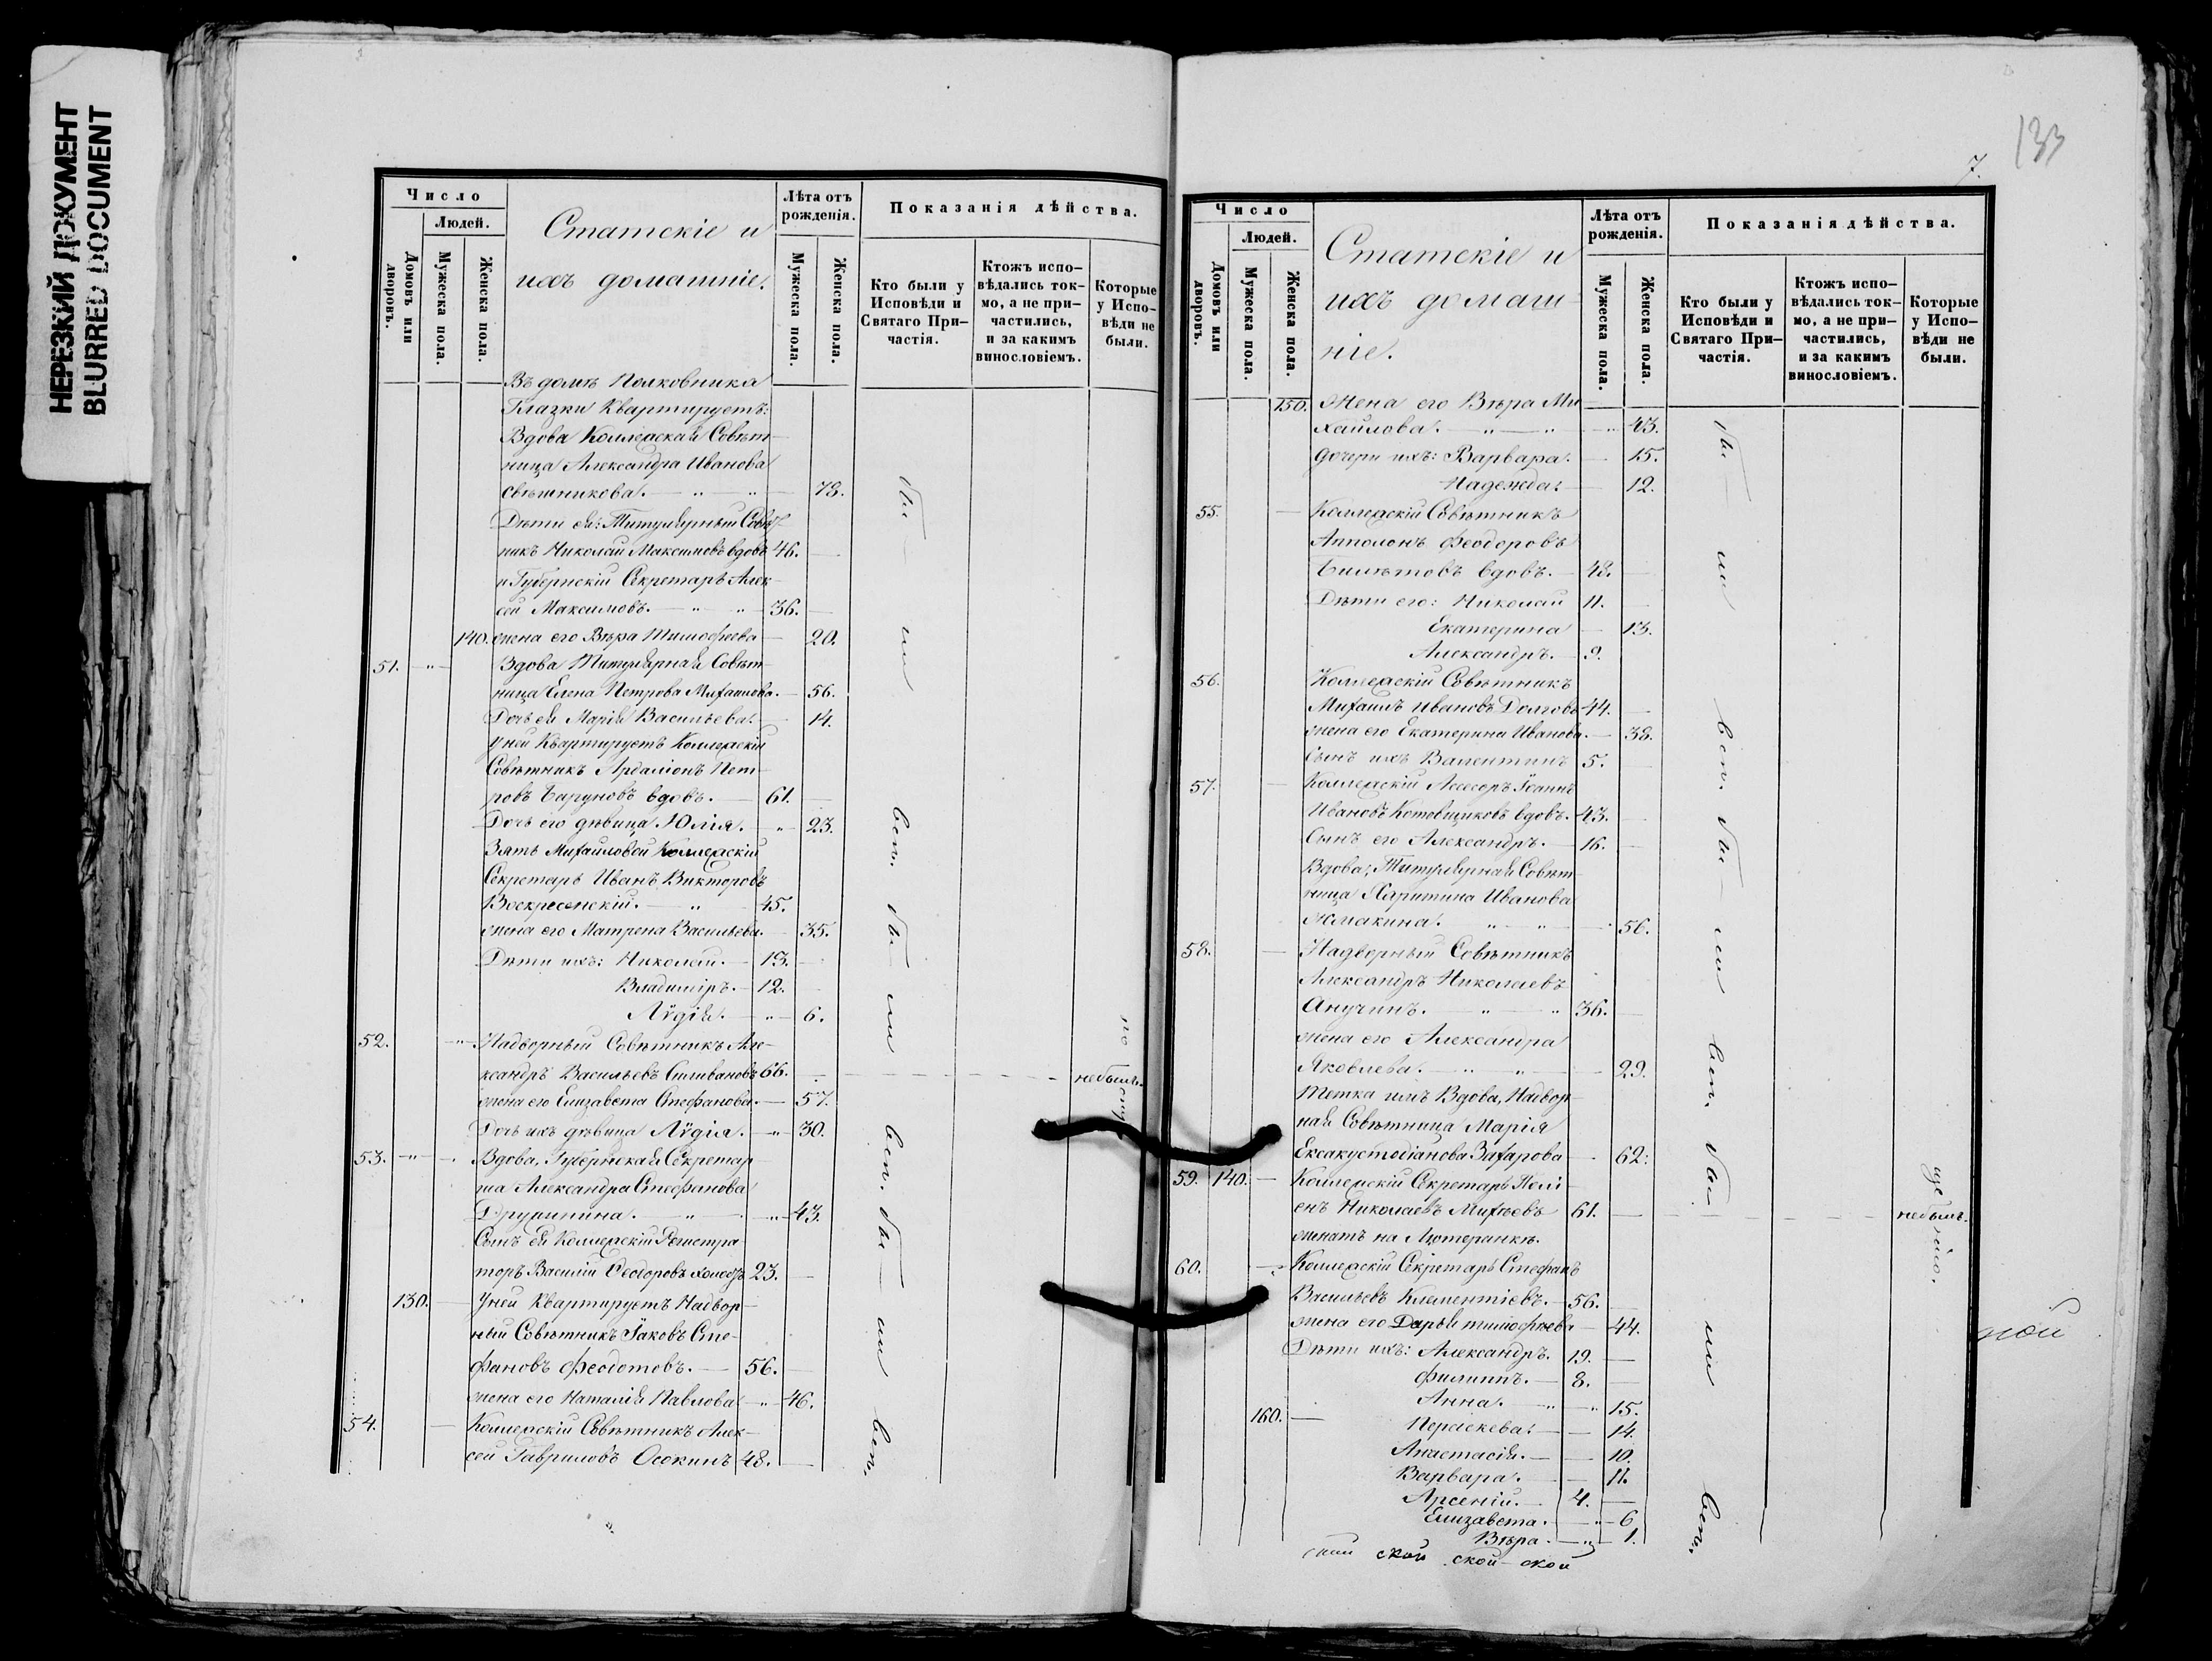 НЕРЕЗКИЙ ДОКУМЕНТ
BLURRED DOCUMENT
Число
Людей.
Домовъ или дворовъ.
Мужеска пола.
Женска пола.
Статскіе и
ихъ домашніе.
Лѣта отъ рожденія.
Мужеска пола.
Женска пола.
Показанія дѣйства.
Кто были у Исповѣди и Святаго Причастія.
Ктожъ исповѣдались токмо, а не причастились, и за какимъ винословіемъ.
Которые у Исповѣди не были.
Въ домѣ Полковника
Глазки Квартируетъ:
Вдова Коллежская Совѣт-
ница Александра Иванова
Свѣшникова. 78.
Дѣти ея: Титулярный Совѣт-
никъ Николай Максимовъ вдовъ 46.
и Губернскій Секретарь Алек-
сей Максимовъ. 36.
140. жена его Вѣра Тимофеева 20.
51. Вдова Титулярная Совѣт-
ница Елена Петрова Михаилова. 56.
Дочь ея Марія Васильева. 14.
У ней Квартируетъ Коллежскій
Совѣтникъ Ардаліонъ Пет-
ровъ Баруновъ вдовъ. 61.
Дочь его дѣвица Юлія. 23.
Зять Михаиловой Коллежскій
Секретарь Иванъ Викторовъ
Воскресенскій. 45.
жена его Матрена Васильева. 35.
Дѣти ихъ: Николай. 13.
Владиміръ. 12.
Лѵдія. 6.
52. Надворный Совѣтникъ Але-
ксандръ Васильевъ Силивановъ 66. небылъ.
жена его Елизавета Стефанова. 57.
Дочь ихъ дѣвица Лѵдія. 30.
53. Вдова, Губернская Секретар-
ша Александра Стефанова
Друпинина. 43.
Сынъ ея Коллежскій Регистра-
торъ Василій Феодоровъ холостъ 23.
130. У ней Квартируетъ Надвор-
ный Совѣтникъ Іаковъ Сте-
фановъ Феодотовъ. 56.
жена его Наталія Павлова 46.
54. Коллежскій Совѣтникъ Алек-
сей Гавриловъ Осокинъ 48.
бы- ли всп. бы- ли всп. бы- ли всп.
133
7.
Число
Людей.
Домовъ или дворовъ.
Мужеска пола.
Женска пола.
Статскіе и
ихъ домаш-
ніе.
Лѣта отъ рожденія.
Мужеска пола.
Женска пола.
Показанія дѣйства.
Кто были у Исповѣди и Святаго Причастія.
Ктожъ исповѣдались токмо, а не причастились, и за какимъ винословіемъ.
Которые у Исповѣди не были.
150. Жена его Вѣра Ми-
хайлова. 43.
Дочери ихъ: Варвара. 15.
Надежда. 12.
55. Коллежскій Совѣтникъ
Апполонъ Феодоровъ
Бимѣтовъ вдовъ. 48.
Дѣти его: Николай 11.
Екатерина 13.
Александръ. 9.
56. Коллежскій Совѣтникъ
Михаилъ Ивановъ Долговъ 44.
жена его Екатерина Иванова. 38.
Сынъ ихъ Валентинъ 5.
57. Коллежскій Ассесоръ Іоаннъ
Ивановъ Котовщиковъ вдовъ. 43.
Сынъ его Александръ. 16.
Вдова, Титулярная Совѣт-
ница Харитина Иванова
Жмакина. 56.
58. Надворный Совѣтникъ
Александръ Николаевъ
Анучинъ. 36.
жена его Александра
Яковлева. 29.
Тетка имъ Вдова, Надвор-
ная Совѣтница Марія
Ексакустодіанова Захарова 62.
59. 140. Коллежскій Секретарь Пелі-
енъ Николаевъ Михѣевъ 61. небылъ.
женатъ на Лютеранкѣ.
60. Коллежскій Секретарь Стефанъ
Васильевъ Клементіевъ. 56.
жена его Дарья Тимофѣева 44.
Дѣти ихъ: Александръ. 19.
Филиппъ. 8.
Анна. 15.
160. Параскева. 14.
Анастасія. 10.
Варвара. 11.
Арсеній. 4.
Елизавета. 6.
Вѣра. 1.
бы- ли всп. бы- ли всп. бы- ли всп.
ской ской ской